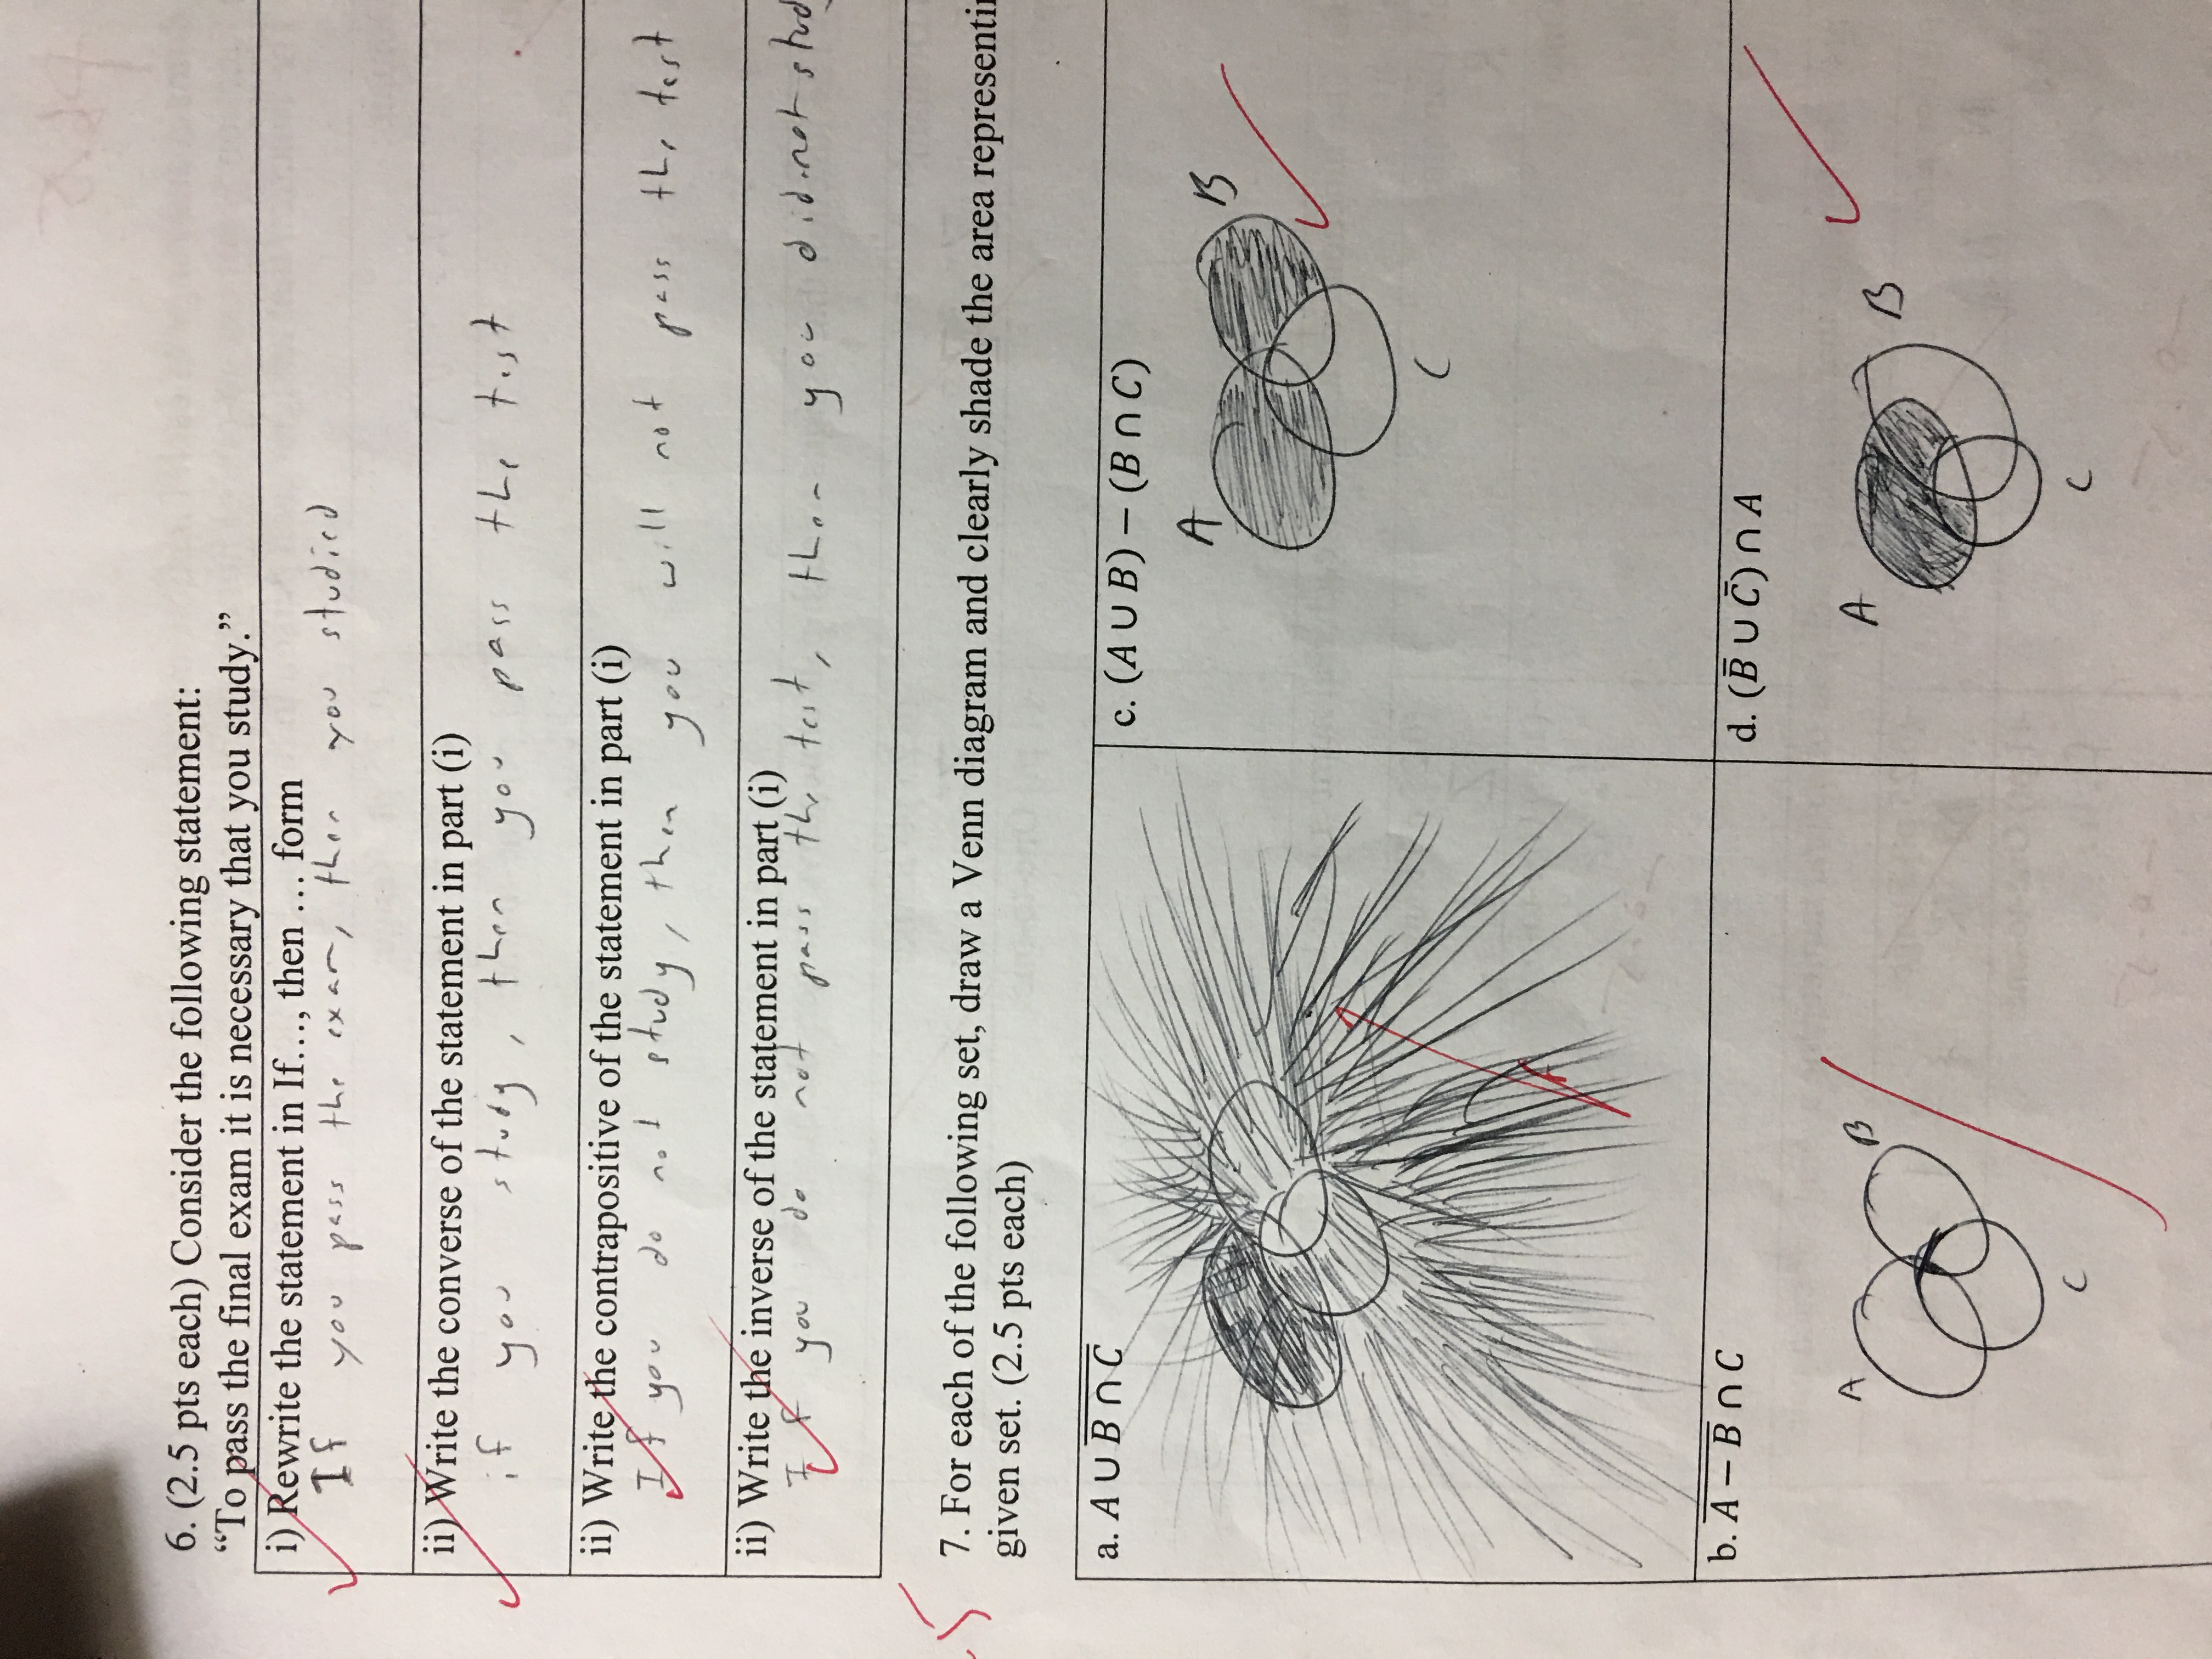 6. (2.5 pts each) Consider the following statement:
“To pass the final exam it is necessary that you study.”
i) Rewrite the statement in If…, then … form
If you pass the exam, then you studied
ii) Write the converse of the statement in part (i)
if you study, then you pass the test
ii) Write the contrapositive of the statement in part (i)
If you do not study, then you will not pass the test
ii) Write the inverse of the statement in part (i)
If you do not pass the test, then you did not stud
5
7. For each of the following set, draw a Venn diagram and clearly shade the area representi
given set. (2.5 pts each)
a. A ∪ B̅ ̅∩̅ ̅C̅
c. (A ∪ B) − (B ∩ C)
A
B
C
b. A̅ ̅−̅ ̅B̅ ∩ C
A
B
C
d. (B̅ ∪ C̅) ∩ A
A
B
C